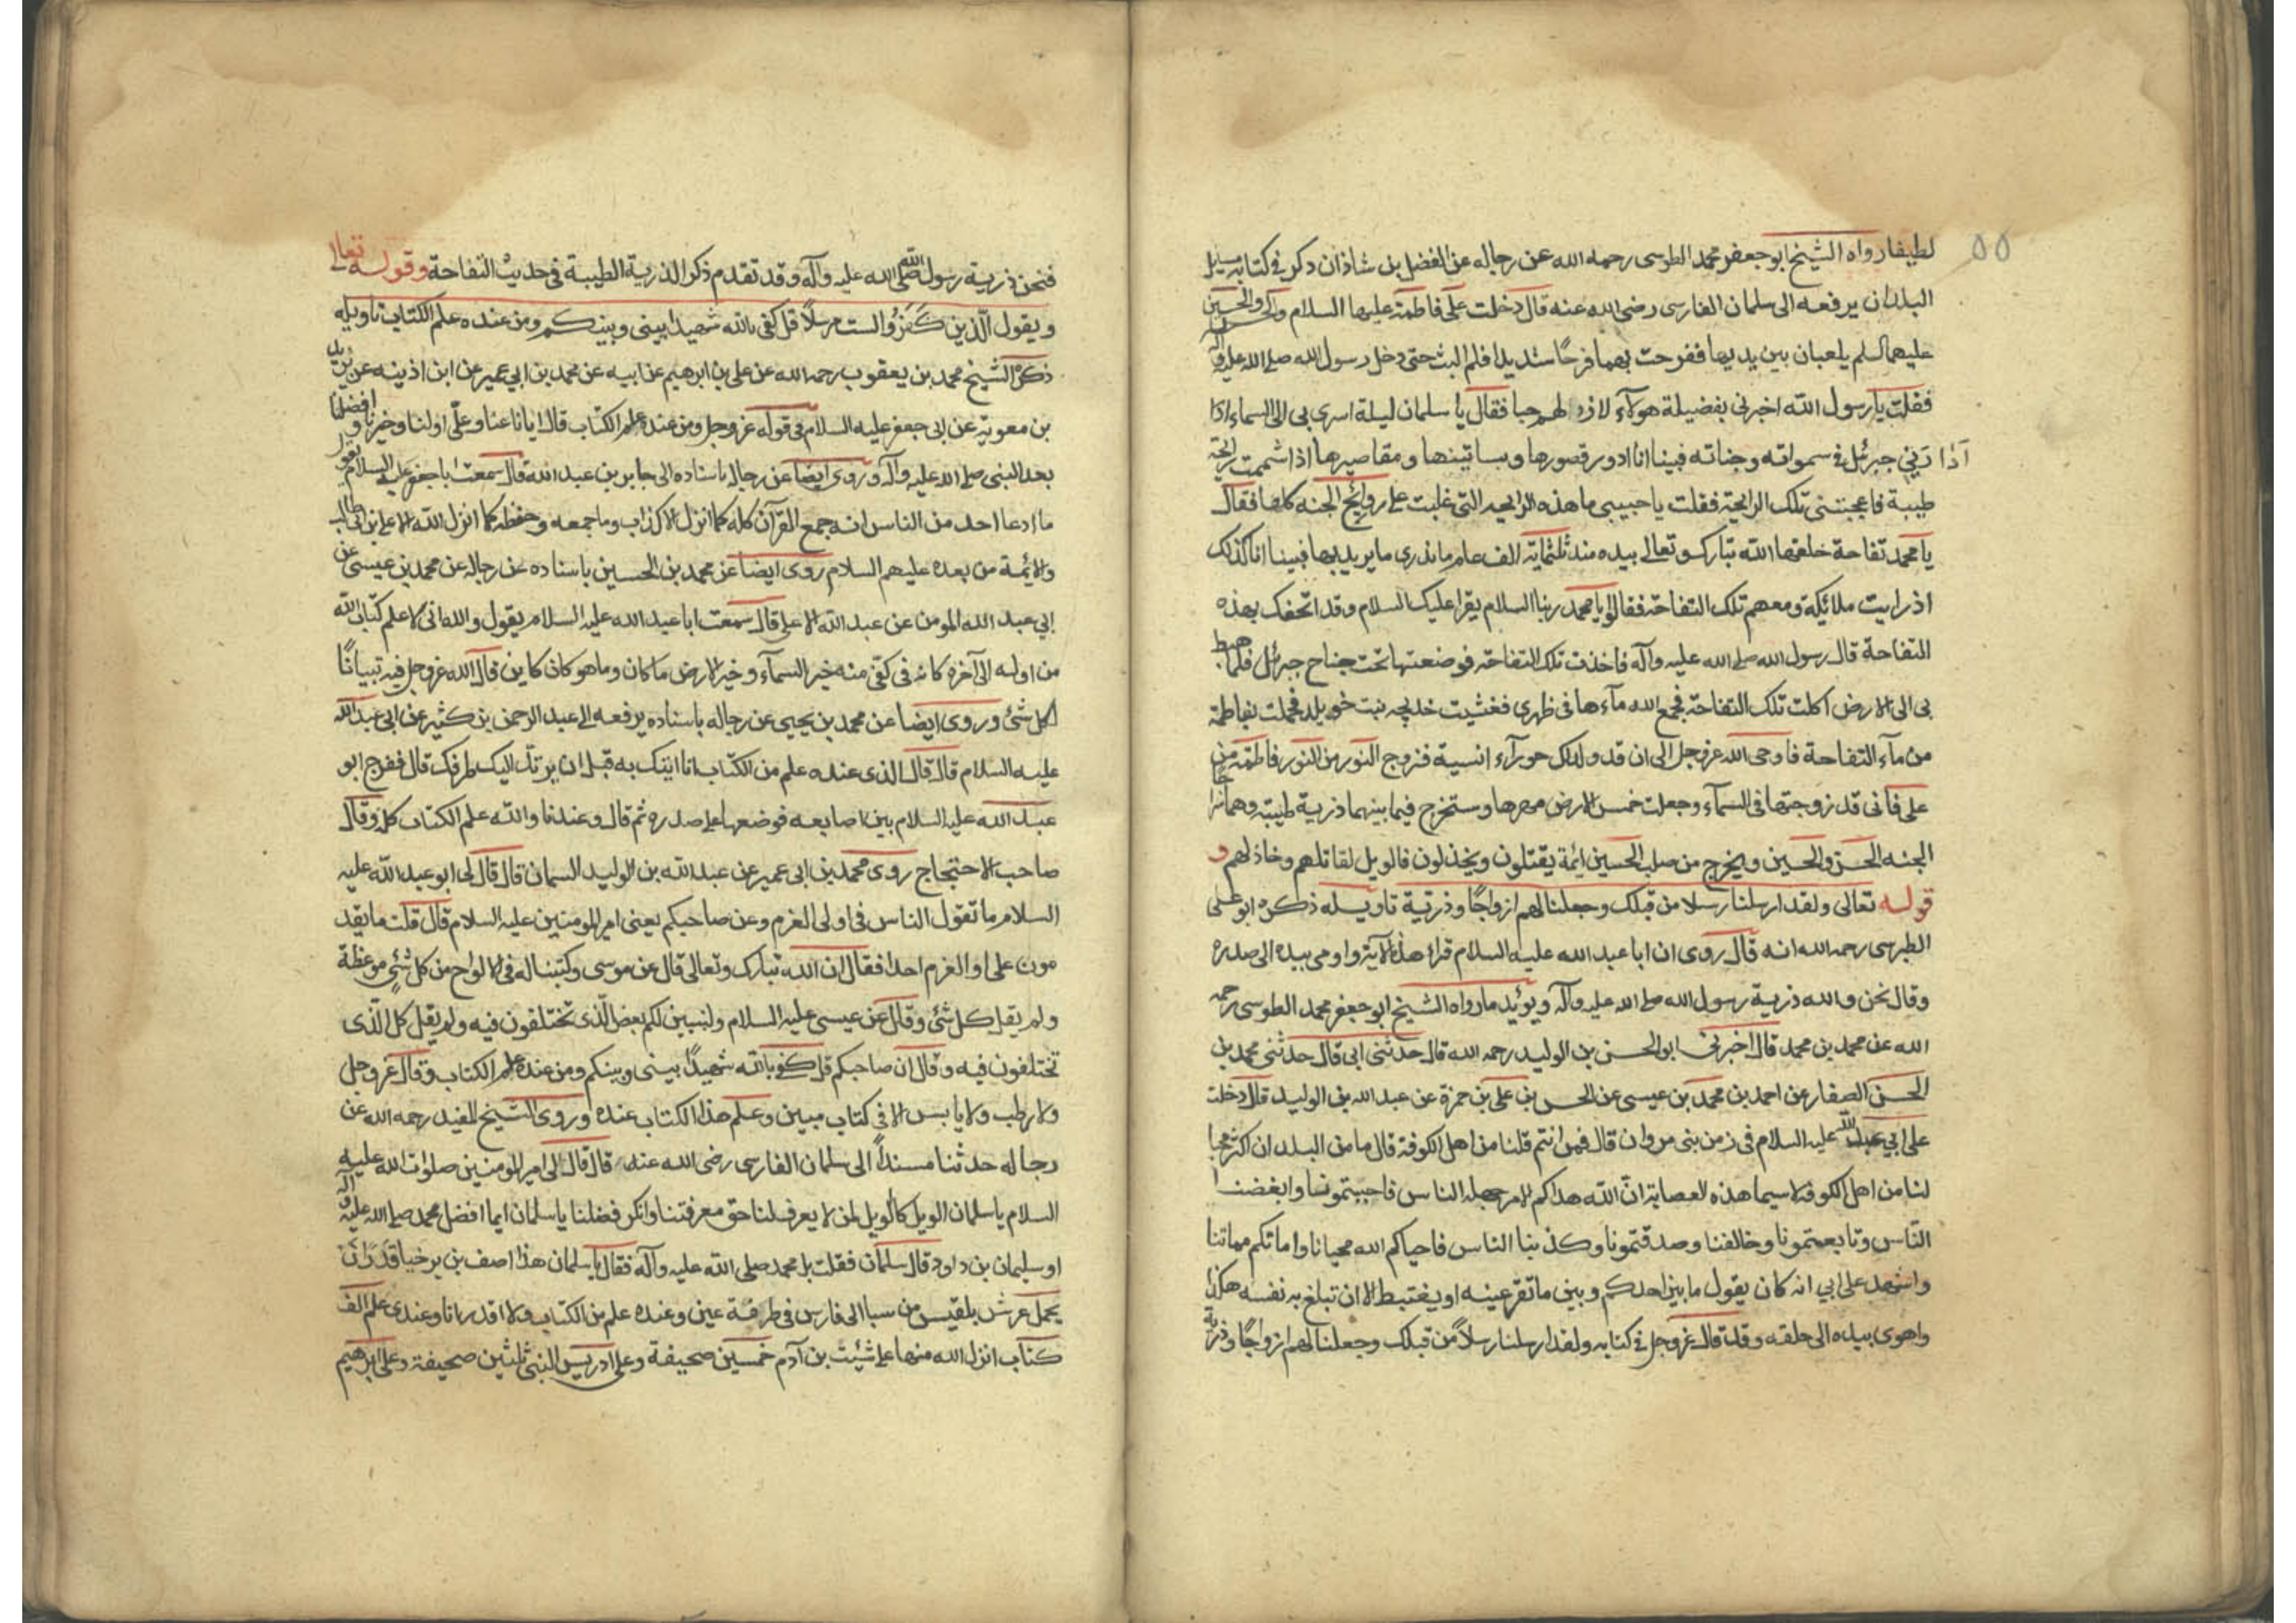 ٥٥
لطيفا رواه الشيخ ابو جعفر محمد الطوسى رحمه الله عن رجاله عن الفضل بن شاذان ذكره فى كتابه مسايل
البلدان يرفعه الى سلمان الفارسى رضى الله عنه قال دخلت على فاطمة عليها السلام والحسن والحسين
عليهما السلم يلعبان بين يديها ففرحت بهما فرحًا شديدا فلم البث حتى دخل رسول الله صلى الله عليه وآله
فقلت يا رسول الله اخبرنى بفضيلة هولاء لازداد لهم حبا فقال يا سلمان ليلة اسرى بى الى السماء اذا
اَدَارَني جبرئل فى سمواته وجناته فبينا انا ادور قصورها وبساتينها ومقاصيرها اذا شممت رايحة
طيبة فاعجبتنى تلك الرايحة فقلت يا حبيبى ما هذه الرايحه التى غلبت على روائح الجنه كلها فقال
يا محمد تفاحة خلقها الله تبارك وتعالى بيده منذ ثلثمايه الف عام ما ندرى ما يريد بها فبينا انا كذلك
اذ رايت ملائكة ومعهم تلك التفاحة فقالوا يا محمد ربنا السلام يقرا عليك السلام وقد اتحفك بهذه
التفاحة قال رسول الله صلى الله عليه وآله فاخذت تلك التفاحة فوضعتها تحت جناح جبرئل فلما هبط
بى الى الارض اكلت تلك التفاحة فجمع الله مآءها فى ظهرى فغشيت خديجه بنت خويلد فحملت بفاطمة
من مآء التفاحة فاوحى الله عز وجل الى ان قد ولد لك حورآء انسية فزوج النور من النور فاطمة من
على فانى قد زوجتها فى السمآء وجعلت خمس الارض مهرها وستخرج فيما بينهما ذرية طيبة وهما سراجا
الجنه الحسن والحسين ويخرج من صلب الحسين ائمة يقتلون ويخذلون فالويل لقاتلهم وخاذلهم و
قوله تعالى ولقد ارسلنا رسلا من قبلك وجعلنا لهم ازواجًا وذرية تاويله ذكره ابو على
الطبرسى رحمه الله انه قال روى ان ابا عبد الله عليه السلام قراء هذه الآية واومى بيده الى صدره
وقال نحن والله ذرية رسول الله صلى الله عليه وآله ويؤيد ما رواه الشيخ ابو جعفر محمد الطوسى رحمه
الله عن محمد بن محمد قال اخبرنى ابو الحسن بن الوليد رحمه الله قال حدثنى ابى قال حدثنى محمد بن
الحسن الصفار عن احمد بن محمد بن عيسى عن الحسن بن على بن حمزة عن عبد الله بن الوليد قال دخلت
على ابي عبد الله عليه السلام فى زمن بنى مروان قال فمن انتم قلنا من اهل الكوفة قال ما من البلدان اكثر محبا
لنا من اهل الكوفه لا سيما هذه العصابة انّ الله هداكم لامر جهله الناس فاحببتمونا وابغضنا
النّاس وتابعتمونا وخالفنا وصدقتمونا وكذبنا الناس فاحياكم الله محيانا واماتكم مماتنا
واشهد على ابي انه كان يقول ما بين احدكم وبين ما تقر عينه او يغتبط الا ان تبلغ به نفسه هكذا
واهوى بيده الى حلقه وقد قال عز وجل فى كتابه ولقد ارسلنا رسلاً من قبلك وجعلنا لهم ازواجًا وذرية
فنحن ذرية رسول الله صلى الله عليه وآله وقد تقدم ذكر الذرية الطيبة فى حديث التفاحة وقوله تعالى
ويقول الّذين كَفَرُوا لست مرسلاً قل كفى بالله شهيدا بينى وبينكم ومن عنده علم الكتاب تاويله
ذكره الشيخ محمد بن يعقوب رحمه الله عن على بن ابرهيم عن ابيه عن محمد بن ابي عمير عن ابن اذينه عن بريد
بن معوية عن ابى جعفر عليه السلام فى قوله عز وجل ومن عنده علم الكتاب قال ايانا عنا وعلىّ اولنا وخيرنا وافضلنا
بعد النبى صلى الله عليه وآله وروى ايضا عن رجاله باسناده الى جابر بن عبد الله قال سمعت ابا جعفر عليه السلام يقول
ما ادعا احد من الناس انه جمع القرآن كله كما انزل الا كذاب وما جمعه وحفظه كما انزل الله الا على بن ابى طالب
والائمة من بعده عليهم السلام روى ايضا عن محمد بن الحسين باسناده عن رجاله عن محمد بن عيسى عن
ابي عبد الله المومن عن عبد الله الاعلى قال سمعت ابا عبد الله عليه السلام يقول والله انى لاعلم كتاب الله
من اوله الى آخره كانه فى كفى منه خبر السمآء وخبر الارض ما كان وما هو كان كاين قال الله عز وجل فيه تبيانًا
لكل شئ وروى ايضا عن محمد بن يحيى عن رجاله باسناده يرفعه الى عبد الرحمن بن كثير عن ابى عبد الله
عليه السلام قال قال الذى عنده علم من الكتاب انا اتيك به قبل ان يرتد اليك طرفك قال ففرج ابو
عبد الله عليه السلام بين اصابعه فوضعها على صدره ثم قال وعندنا والله علم الكتاب كله وقال
صاحب الاحتجاج روى محمد بن ابى عمير عن عبد الله بن الوليد السمان قال قال لى ابو عبد الله عليه
السلام ما تقول الناس فى اولى العزم وعن صاحبكم يعنى امير المومنين عليه السلام قال قلت ما يقد
مون على اولو العزم احدا فقال ان الله تبارك وتعالى قال عن موسى وكتبنا له فى الالواح من كل شئٍ موعظة
ولم يقل كل شئ وقال عن عيسى عليه السلام ولنبين لكم بعض الّذى تختلفون فيه ولم يقل كل الّذى
تختلفون فيه وقال ان صاحبكم قل كفى بالله شهيدًا بينى وبينكم ومن عنده علم الكتاب وقال عز وجل
ولا رطب ولا يابس الا فى كتاب مبين وعلم هذا الكتاب عنده وروى الشيخ المفيد رحمه الله عن
رجاله حدثنا مسنداً الى سلمان الفارسى رضى الله عنه قال قال لى امير المومنين صلوات الله عليه
السلام يا سلمان الويل كالويل لمن لا يعرف لنا حق معرفتنا وانكر فضلنا يا سلمان ايما افضل محمد صلى الله عليه وآله
او سليمان بن داود قال سلمان فقلت بل محمد صلى الله عليه وآله فقال يا سلمان هذا اصف بن برخيا قَدَرَ اَن
يحمل عرش بلقيس من سبا الى فارس فى طرفة عين وعنده علم من الكتاب ولا اقدر انا وعندى علم الف
كتاب انزل الله منها على شيث بن آدم خمسين صحيفة وعلى ادريس النبى ثلثين صحيفة وعلى ابرهيم